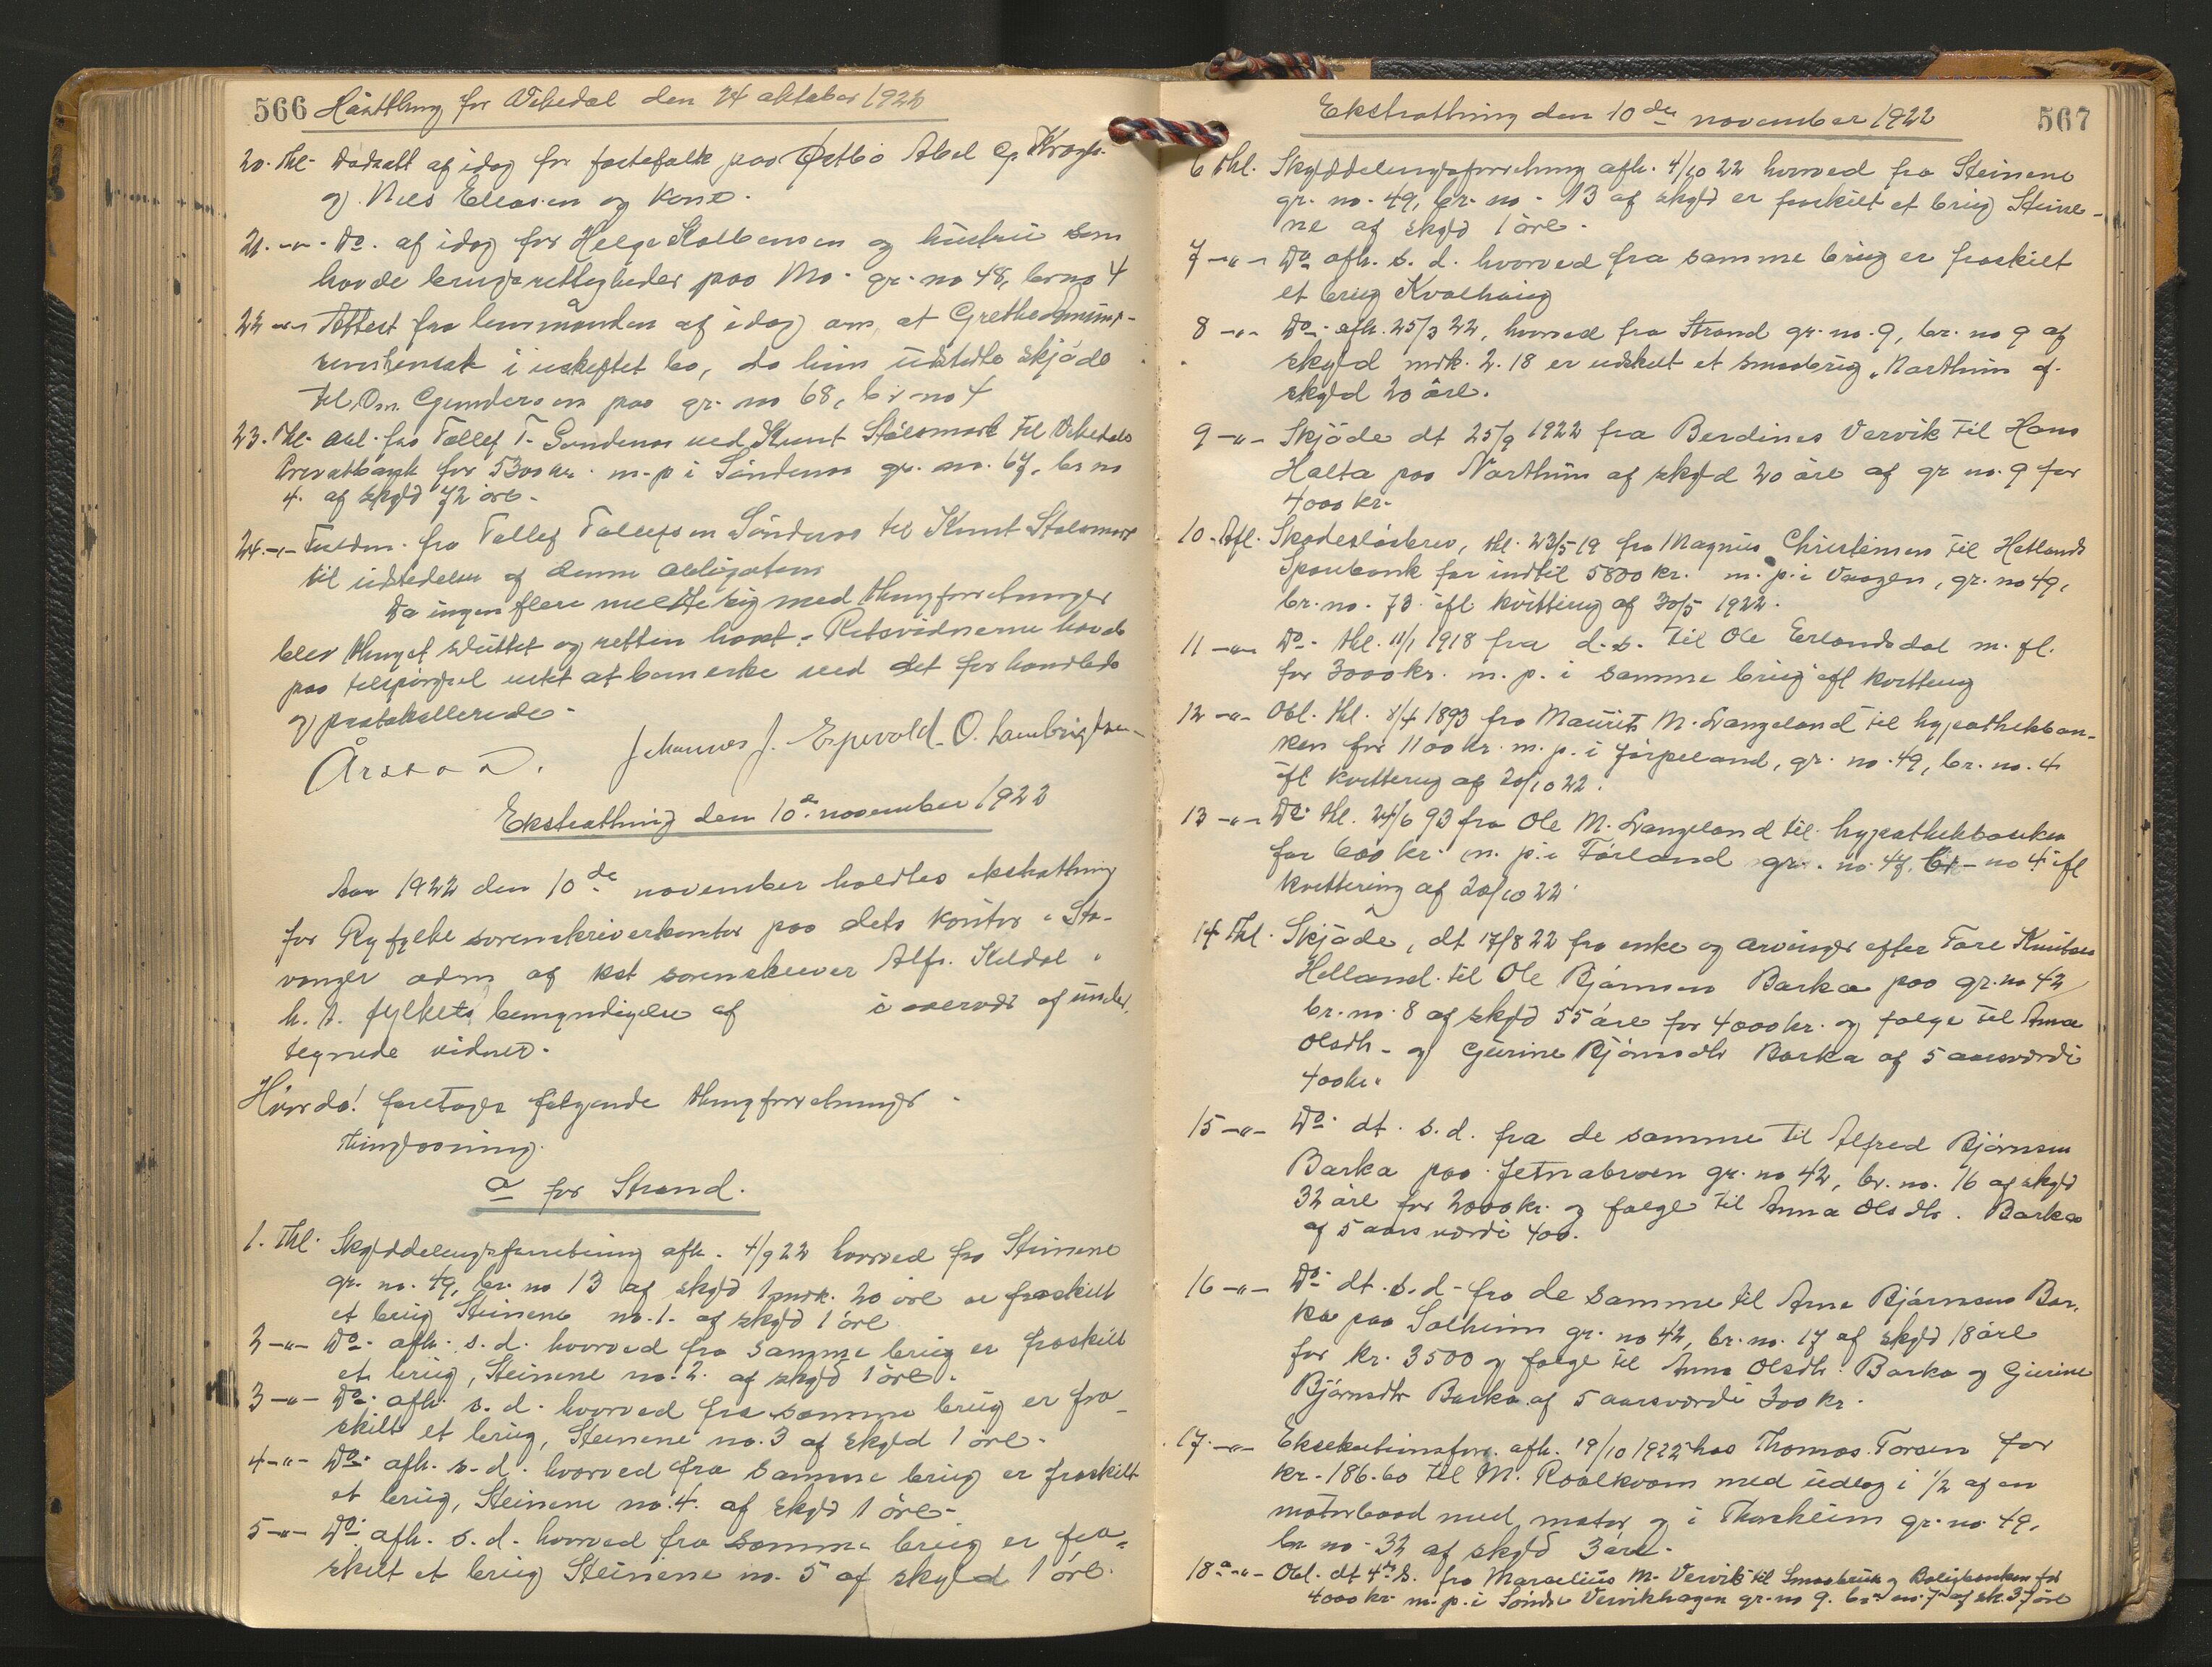 566 Høstthing for Årdal den 24 oktober 1922
20. Thl. Dødsatt af idag for festefolk paa Østbø Abel
og Nils Eliasen og kone.
21. -"- Do. af idag for Helge Kolbensen og hustru som
havde brugsrettigheder paa Mo. gr. no 48, br no 4
22 -"- Attest fra lensmanden af idag om, at Grethe
i uskiftet bo, da hun udstedte skjøde
til Om. Gundersen paa gr. no 68, br. no 4
23. Thl. Obl. fra Tollef T. Søndenaa ved Knut Stålesmork til
Privatbank for 5300 kr. m. p i Søndenaa gr. no. 67. br no
4. af skyld 72 øre.
24. -"- Fuldm. fra Tollef Tollefsen Søndenaa til Knut
til udstedelse af denne obligation
Da ingen flere meldte sig med thingforretninger
blev thinget sluttet og retten hævet. Retsvidnerne havde
paa tilspørgsel intet at bemerke ved det forhandlede
og protokollerede.
Årstad. Johannes J. Espevold. O. Lambrigtsen
Ekstrathing den 10de november 1922
Aar 1922 den 10de november holdtes ekstrathing
for Ryfylke sorenskriverkontor paa dets kontor i Sta-
vanger adm af kst sorenskriver Alfr. Keldal i
h. t. fylkets bemyndigelse af i overvær af under-
tegnede vidner.
Hvorda! foretages følgende thingforretninger
Thinglæsning.
a for Strand.
1. Thl. Skylddelingsforretning afh. 4/9 22 hvorved fra Steinene
gr. no. 49, br. no 13 af skyld 1 mrk. 20 øre er fraskilt
et brug Steinene no. 1. af skyld 1 øre
2 -"- Do. afh. s. d. hvorved fra samme brug er fraskilt
et brug, Steinene no. 2. af skyld 1 øre.
3 -"- Do. afh. s. d. hvorved fra samme brug er fra-
skilt et brug, Steinene no. 3 af skyld 1 øre.
4 -"- Do. afh. s. d. hvorved fra samme brug er fraskilt
et brug, Steinene no. 4. af skyld 1 øre.
5 -"- Do. afh. s. d. hvorved fra samme brug er fra-
skilt et brug Steinene no. 5 af skyld 1 øre.
Ekstrathing den 10de november 1922 567
6 Thl. Skylddelingsforretning afh. 4/10 22 hvorved fra Steinene
gr. no. 49, br. no. 13 af skyld er fraskilt et brug Steine-
ne af skyld 1 øre.
7 -"- Do afh. s. d. hvorved fra samme brug er fraskilt
et brug Kvalhaug
8 -"- Do. afh. 25/3 22, hvorved fra Strand gr. no. 9, br. no 9 af
skyld mrk. 2.18 er udskilt et smaabrug "Northun af
skyld 20 øre.
9 -"- Skjøde dt 25/9 1922 fra Berdines Vervik til Hans
Halta paa Northun af skyld 20 øre af gr no. 9 for
4000 kr.
10. Afl. Skadesløsbrev, thl. 23/5 19 fra Magnus Christensen til Hetlands
Sparebank for indtil 5800 kr. m. p. i Vaagen, gr. no 49,
br. no. 73. ifl kvittering af 30/5 1922.
11 -"- Do. thl. 11/1 1918 fra d. s. til Ole Erlandsdal m. fl.
for 3000 kr. m. p. i samme brug ifl kvittering
12 -"- Obl. thl. 8/4 1893 fra Maurits M. Langeland til hypothekban-
ken for 1100 kr. m. p. i Jørpeland, gr. no. 49, br. no. 4
ifl kvittering af 20/10 22.
13 -"- Do. thl. 24/6 93 fra Ole M. Langeland til hypothekbanken
for 600 kr. m. p. i Førland gr. no. 47. br. no 4 ifl
kvittering af 20/10 22.
14 Thl. Skjøde, dt 17/8 22 fra enke og arvinger efter Tore Knutsen
Helland til Ole Bjørnsen Barka paa gr. no 42
br. no. 8 af skyld 55 øre for 4000 kr. og følge til Anna
Olsdtr. og Gurine Bjørnsdtr Barka af 5 aarsværdi
400 kr.
15 -"- Do. dt. s. d. fra de samme til Alfred Bjørnsen
Barka paa Jetnabroen gr. no 42, br. no. 16 af skyld
32 øre for 2000 kr. og følge til Anna Olsdtr. Barka
af 5 aars værdi 400.
16 -"- Do. dt. s. d. fra de samme til Arne Bjørnsen Bar-
ka paa Solheim gr. no 42, br. no. 17 af skyld 18 øre
for kr. 3500 og følge til Anna Olsdtr. Barka og Gurine
Bjørnsdtr Barka af 5 aarsværdi 300 kr.
17. -"- Eksekutionsforr. afh. 19/10 1922 hos Thomas Torsen for
kr. 186.60 til M. Roalkvam med udlæg i 1/2 af en
motorbaad med motor og i Thorsheim gr. no. 49,
br no. 32 af skyld 3 øre.
18 a -"- Obl. dt 4 ds. fra Marselius M. Vervik til Smaabruk og Boligbanken for
4000 kr. m. p. i Søndre Vervikhagen gr. no 9. br no. 7 af sk. 37 øre